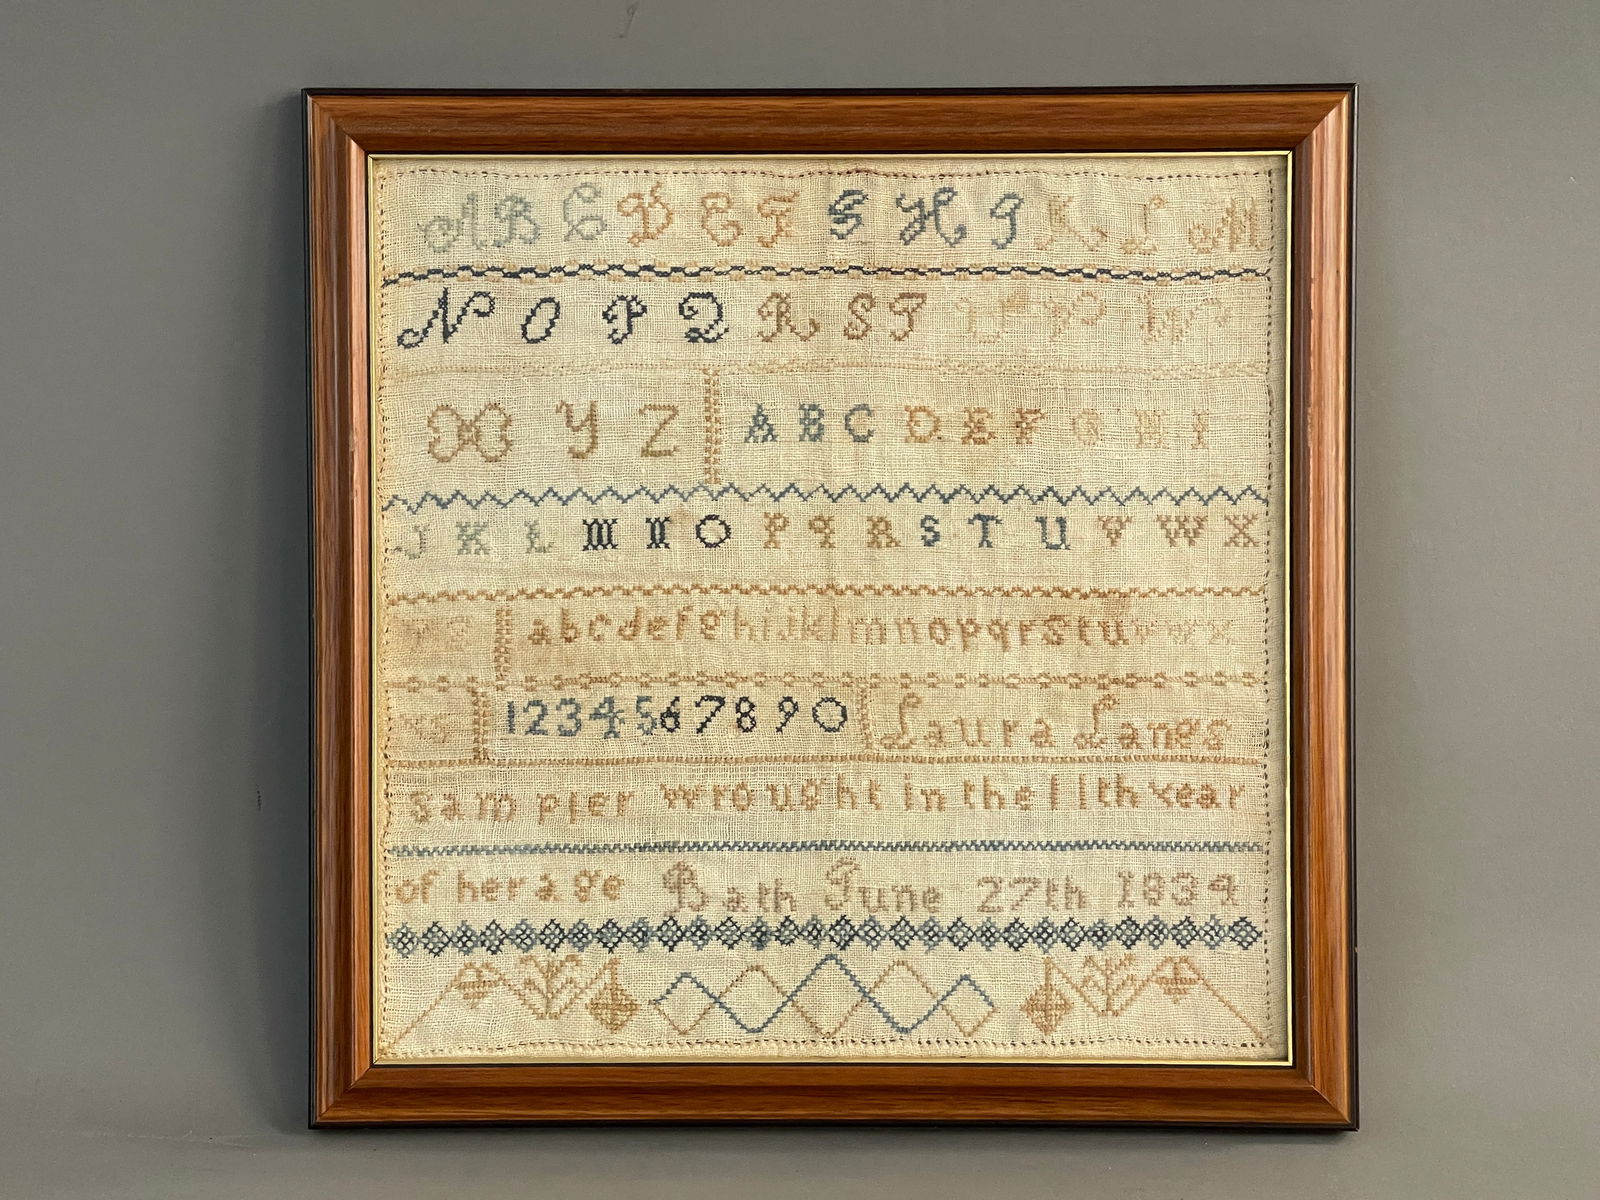 A B C D E F G H I K L M
N O P Q R S T U V W
X Y Z A B C D E F G H I
J K L M N O P q R S T U V W X
Y Z a b c d e f g h i j k l m n o p q r s t u v w x
y z 1 2 3 4 5 6 7 8 9 0 Laura Lanes
sampler wrought in the 11th year
of her age Bath June 27th 1834